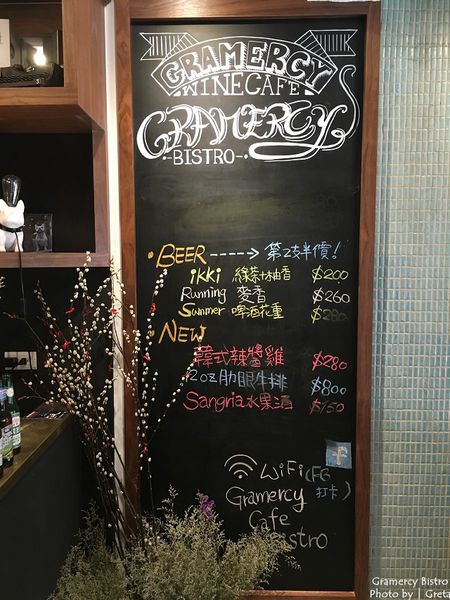 GRAMERCY
WINECAFE
GRAMERCY
-BISTRO-
•BEER ----→ 第2支半價!
ikki 綠茶+柚香 $200
Running 麥香 $260
Summer 啤酒花重 $280
NEW
韓式辣醬雞 $280
12oz 肋眼牛排 $800
Sangria水果酒 $150
f
WiFi(FB
打卡)
Gramercy
Cafe
Bistro
Gramercy Bistro
Photo by | Greta